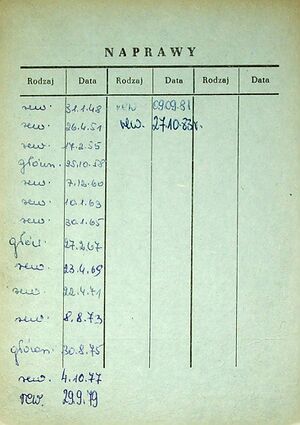 NAPRAWY
Rodzaj Data Rodzaj Data Rodzaj Data
rew. 31.1.48 rew 09.09.81
rew. 26.4.51 rew. 27.10.83r.
rew. 17.2.55
główn. 25.10.58
rew. 7.12.60
rew. 10.1.63
rew. 30.1.65
główn. 27.2.67
rew. 23.4.69
rew. 22.4.71
rew. 8.8.73
główn. 30.8.75
rew. 4.10.77
rew. 29.9.79